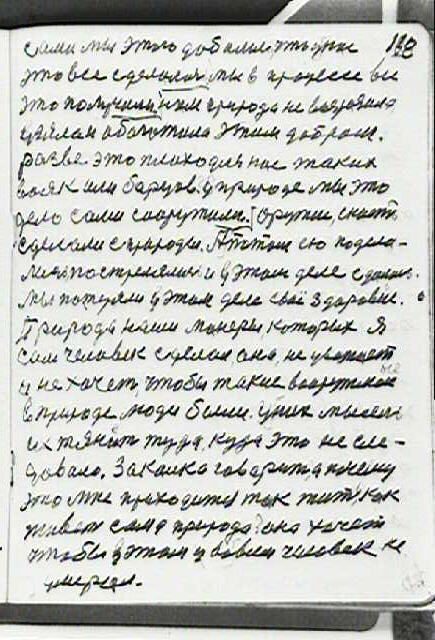 сами мы этого добились, что мы 118
это все сделали, мы в процессе все
это получили. Нам природа не возразила
обогатила этим добром.
разве это плохо для нас таких
вояк или борцов. В природе мы это
дело сами соорудили. Оружие, снасть
сделали с природы. А потом ею подела-
лись постреляли и в этом деле
Мы потеряли в этом деле свое здоровье.
Природа наши манеры, которых я
сам человек сделал, она, не уважает
и не хочет, чтобы такие вооруженные
в природе люди были. У них мысель
их тянет туда, куда это не сле-
довало. Закалка говорит, а почему
это мне приходится так жить, как
живет сама природа? она хочет
чтобы в этом и вовсем человек не
умирал.